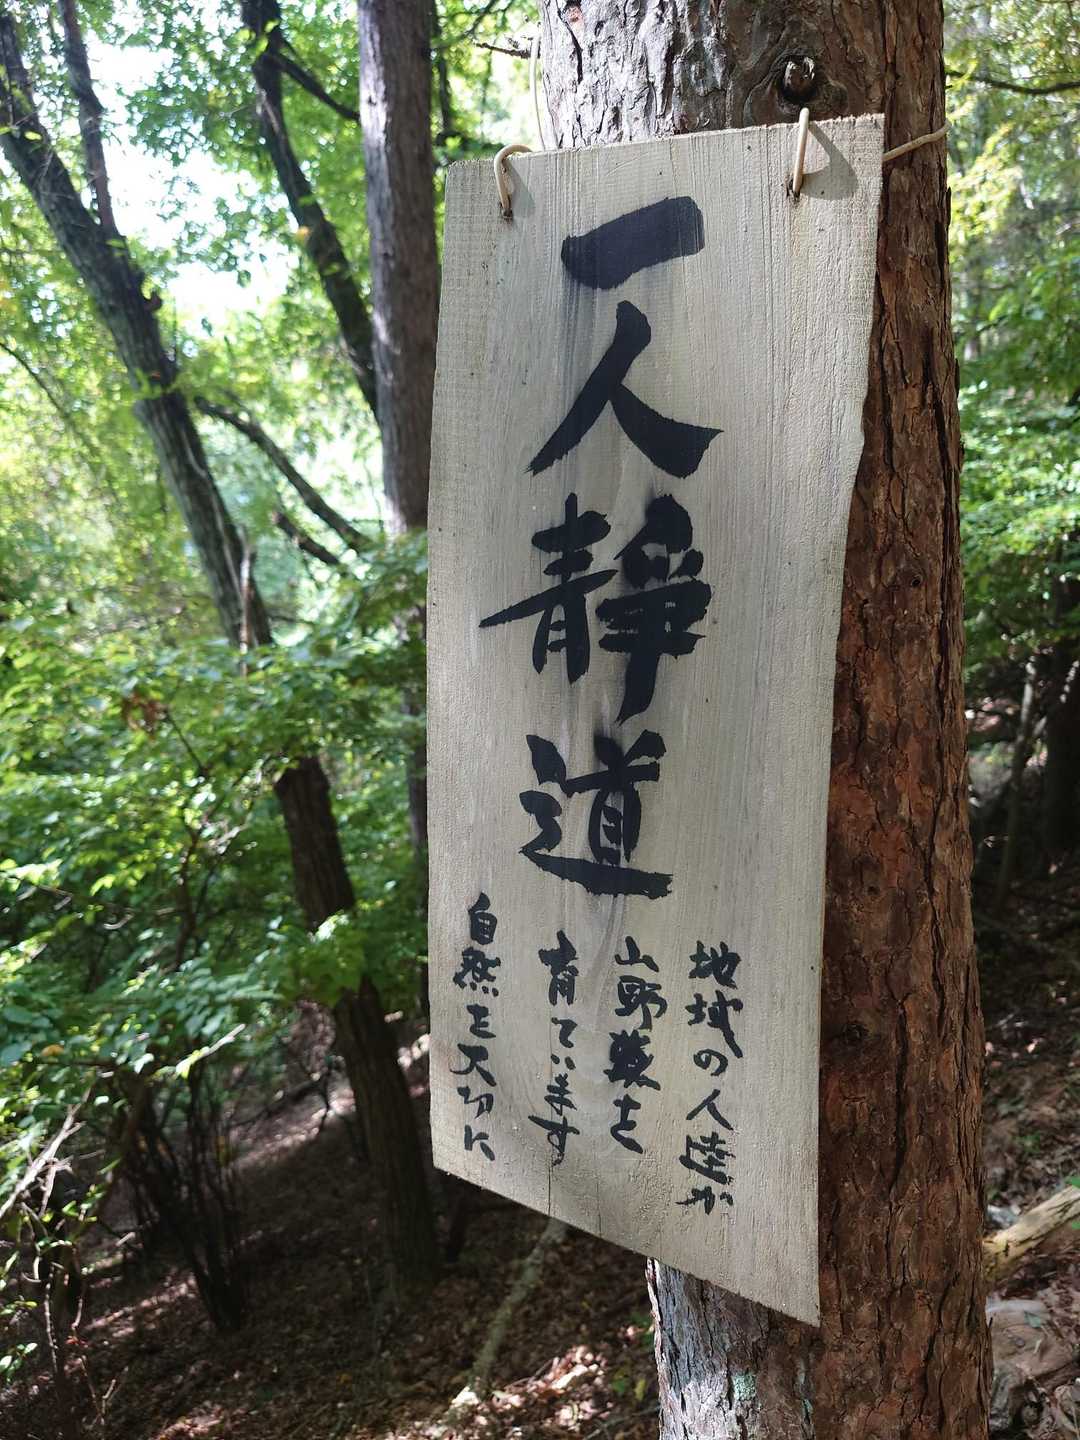 一人静道
地域の人達が
山野草を
育ています
自然を大切に